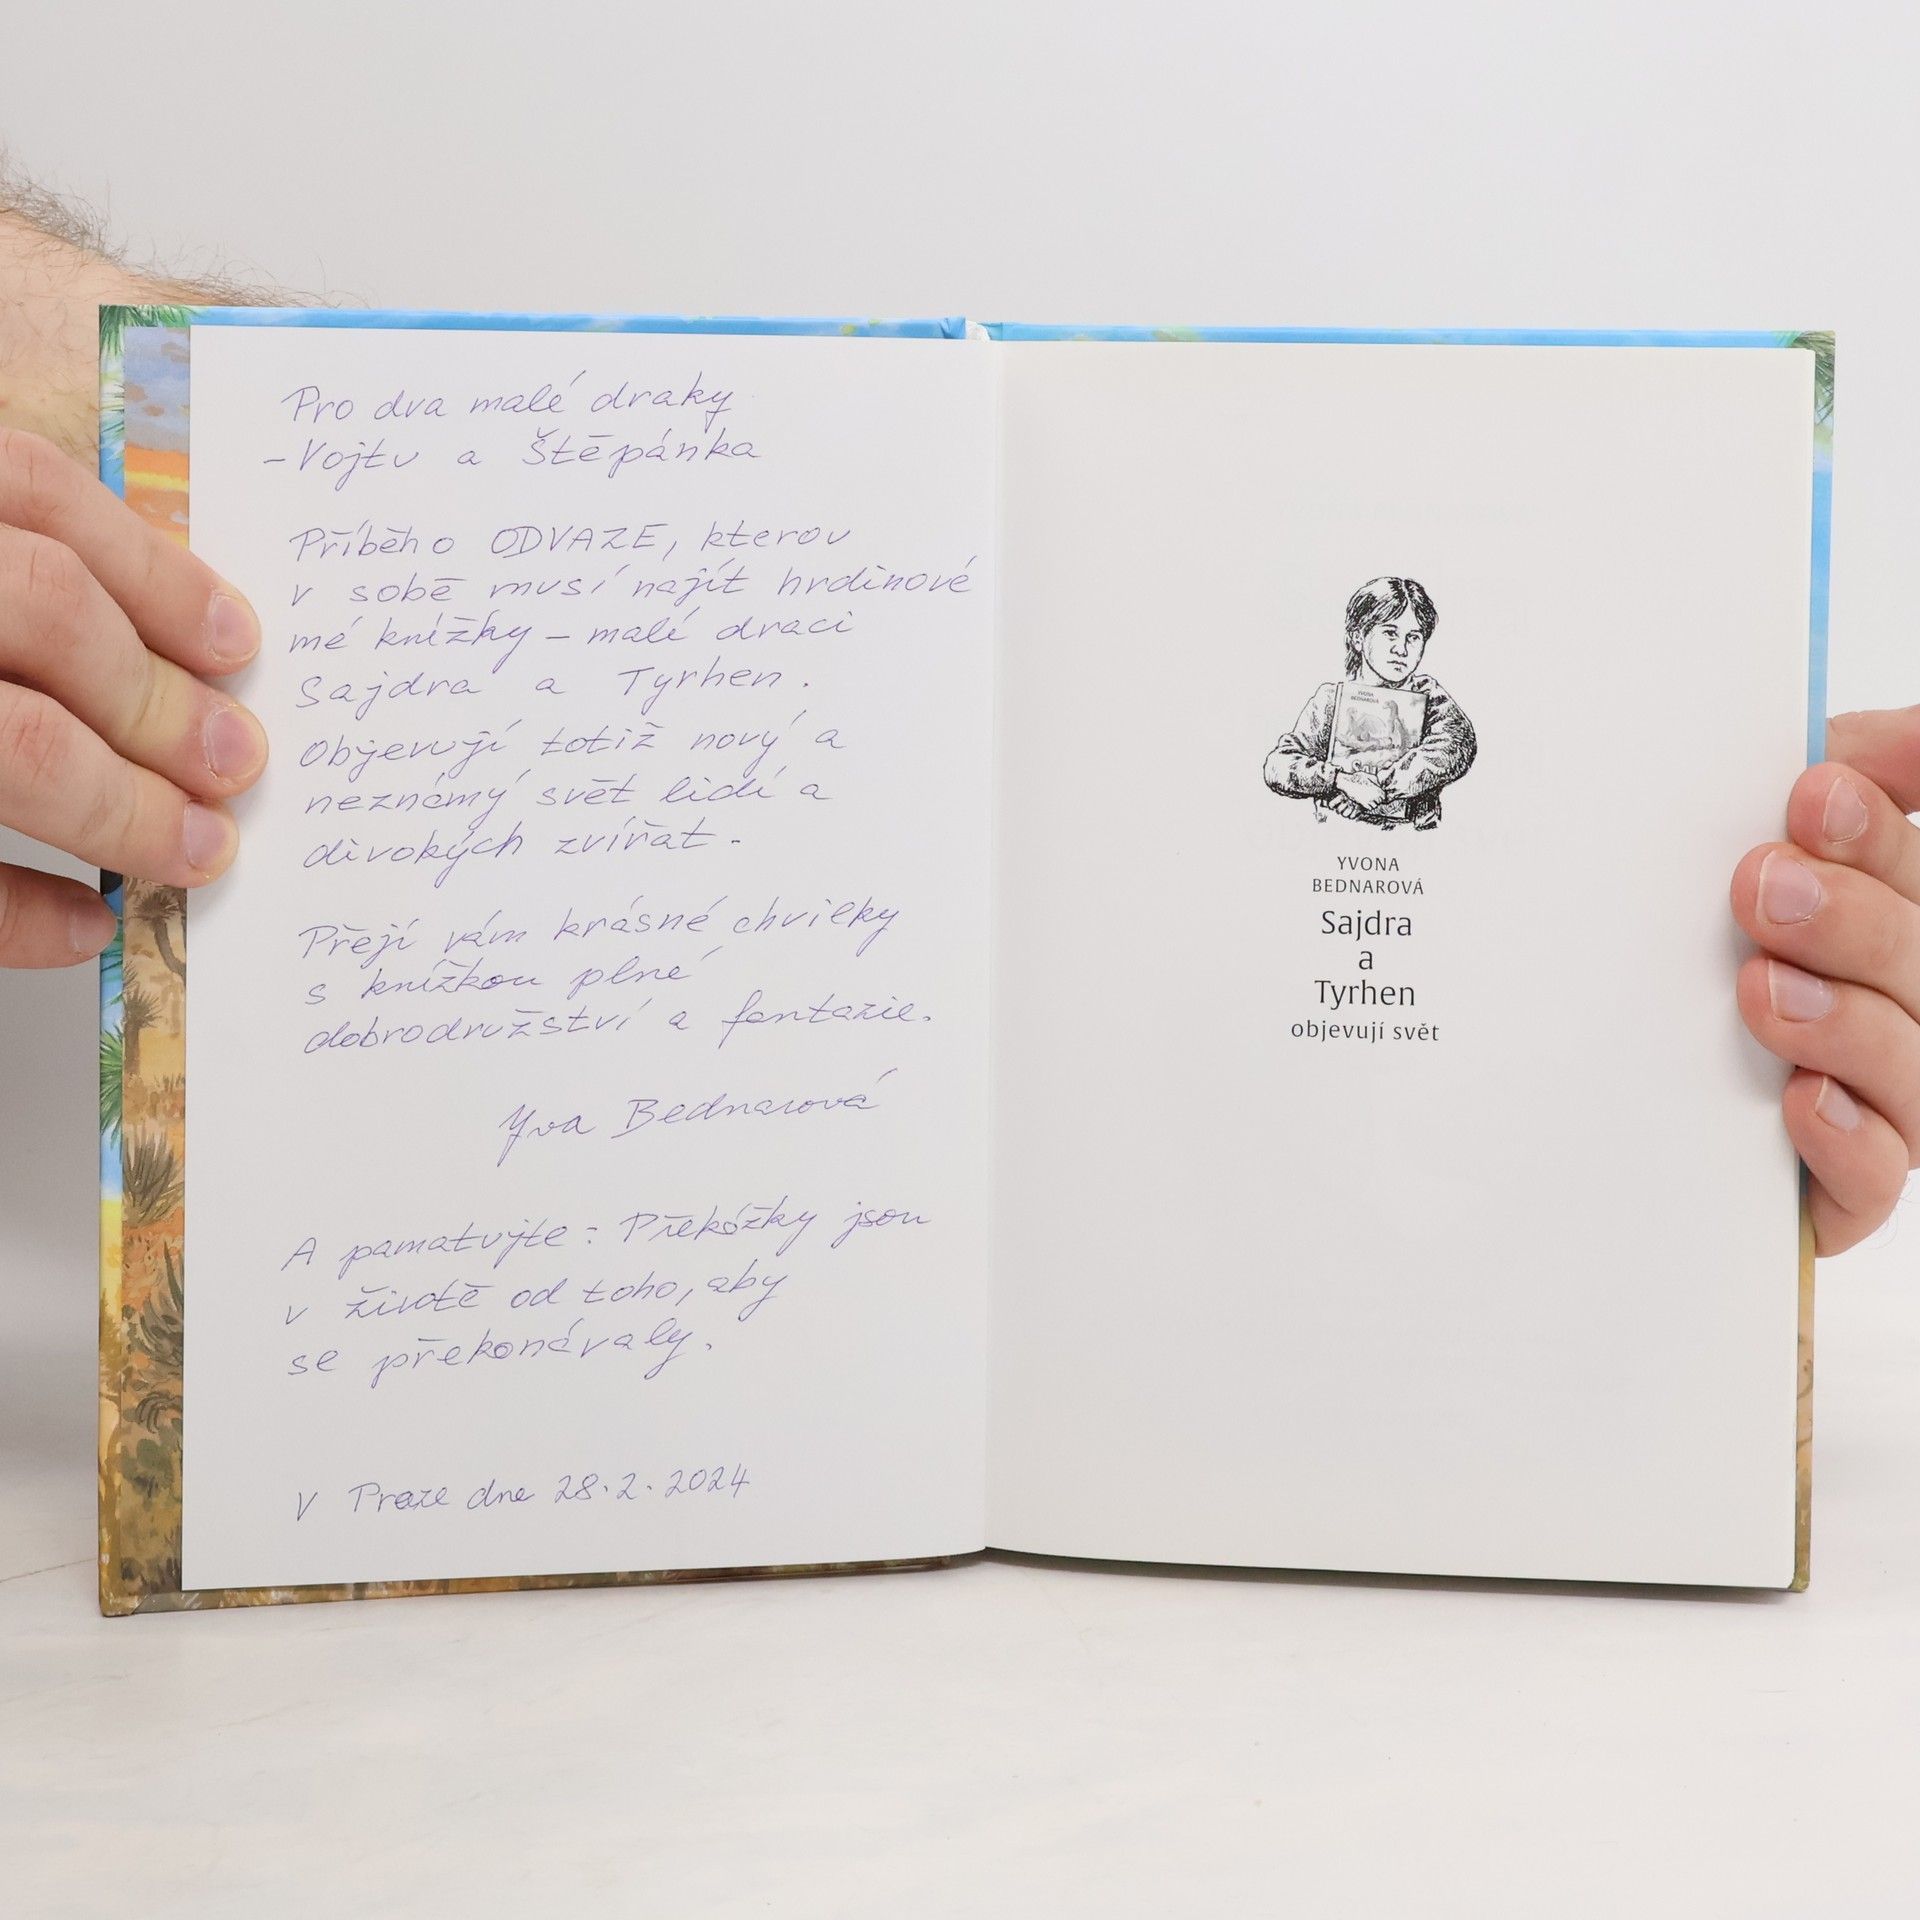 Pro dva malé draky
- Vojtu a Štěpánka
Příběh o ODVAZE, kterou
v sobě musí najít hrdinové
mé knížky - malí draci
Sajdra a Tyrhen.
Objevují totiž nový a
neznámý svět lidí a
divokých zvířat.
Přeji vám krásné chvilky
s knížkou plné
dobrodružství a fantazie.
Yva Bednarová
A pamatujte: Překážky jsou
v životě od toho, aby
se překonávaly.
V Praze dne 28.2.2024
YVONA
BEDNAROVÁ
YVONA
BEDNAROVÁ
Sajdra
a
Tyrhen
objevují svět